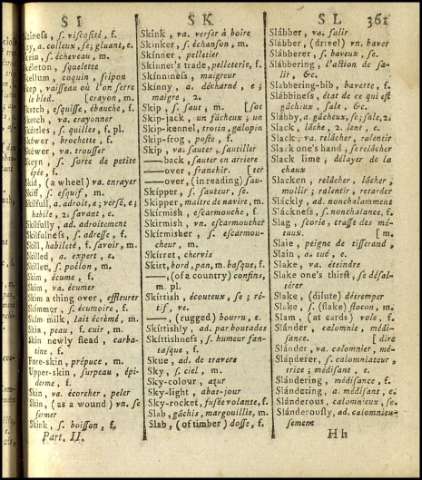 S I
S K
S L 361
s. viscosité, f.
a. colleux, se; gluant, e.
s. écheveau, m.
squelette
coquin, fripon
vaisseau où l'on serre
le bled. [crayon, m.
esquisse, ébauche, f.
va. crayonner
s. quilles, f. pl.
brochette, f.
va. trousser
s. sorte de petite
épée, f.
(a wheel) va. enrayer
Skiff, s. esquif, m.
Skilful, a. adroit, e; versé, e;
habile, 2; savant, e.
Skilfully, ad. adroitement
Skilfulness, s. adresse, f.
Skill, habileté, f. savoir, m.
Skilled, a. expert, e.
poëlon, m.
Skim, écume, f.
Skim, va. écumer
Skim a thing over, effleurer
Skimmer, s. écumoire, f.
Skim milk, lait écrémé, m.
Skin, peau, f. cuir, m.
Skin newly flead, carba-
tine, f.
Fore-skin, prépuce, m.
Upper-skin, surpeau, épi-
derme, f.
Skin, va. écorcher, peler
Skin, (as a wound) vn. se
fermer
Skink, s. boisson, f.
Part. II.
Skink, va. verser à boire
Skinker, s. échanson, m.
Skinner, pelletier
Skinner's trade, pelleterie, f.
Skinniness, maigreur
Skinny, a. décharné, e;
maigre, 2.
Skip, s. saut, m. [sot
Skip-jack, un fâcheux; un
Skip-kennel, trotin, galopin
Skip-frog, poste, f.
Skip, va. sauter, sautiller
—back, sauter en arriere
—over, franchir. [ter
—over, (in reading) sau-
Skipper, s. sauteur, se.
Skipper, maître de navire, m.
Skirmish, escarmouche, f.
Skirmish, vn. escarmoucher
Skirmisher, s. escarmou-
cheur, m.
Skirret, chervis
Skirt, bord, pan, m. basque, f.
—, (of a country) confins,
m. pl.
Skittish, écouteux, se; ré-
tif, ve.
—, (rugged) bourru, e.
Skittishly, ad. par boutades
Skittishness, s. humeur fan-
tasque, f.
Skue, ad. de travers
Sky, s. ciel, m.
Sky-colour, azur
Sky-light, abat-jour
Sky-rocket, fusée volante, f.
Slab, gâchis, margouillis, m.
Slab, (of timber) dosse, f.
Slábber, va. salir
Slábber, (drivel) vn. baver
Slábberer, s. baveux, se.
Slábbering, l'action de sa-
lir, &c.
Slabbering-bib, bavette, f.
Slábbiness, état de ce qui est
gâcheux, sale, &c.
Slábby, a. gâcheux, se; sale, 2.
Slack, lâche, 2. lent, e.
Slack, va. relâcher, ralentir
Slack one's hand, se relâcher
Slack lime, délayer de la
chaux
Slacken, relâcher, lâcher,
mollir; ralentir, retarder
Sláckly, ad. nonchalamment
Sláckness, s. nonchalance, f.
Slag, scorie, crasse des mé-
taux. [m.
Slaie, peigne de tisserand,
Slain, a. tué, e.
Slake, va. éteindre
Slake one's thirst, se désal-
térer
Slake, (dilute) détremper
Slake, s. (flake) flocon, m.
Slam, (at cards) vole, f.
Slánder, calomnie, médi-
sance. [dire
Slánder, va. calomnier, mé-
Slánderer, s. calomniateur,
trice; médisant, e.
Slándering, médisance, f.
Slándering, a. médisant, e.
Slánderous, calomnieux, se.
Slánderously, ad. calomnieu-
sement
H h